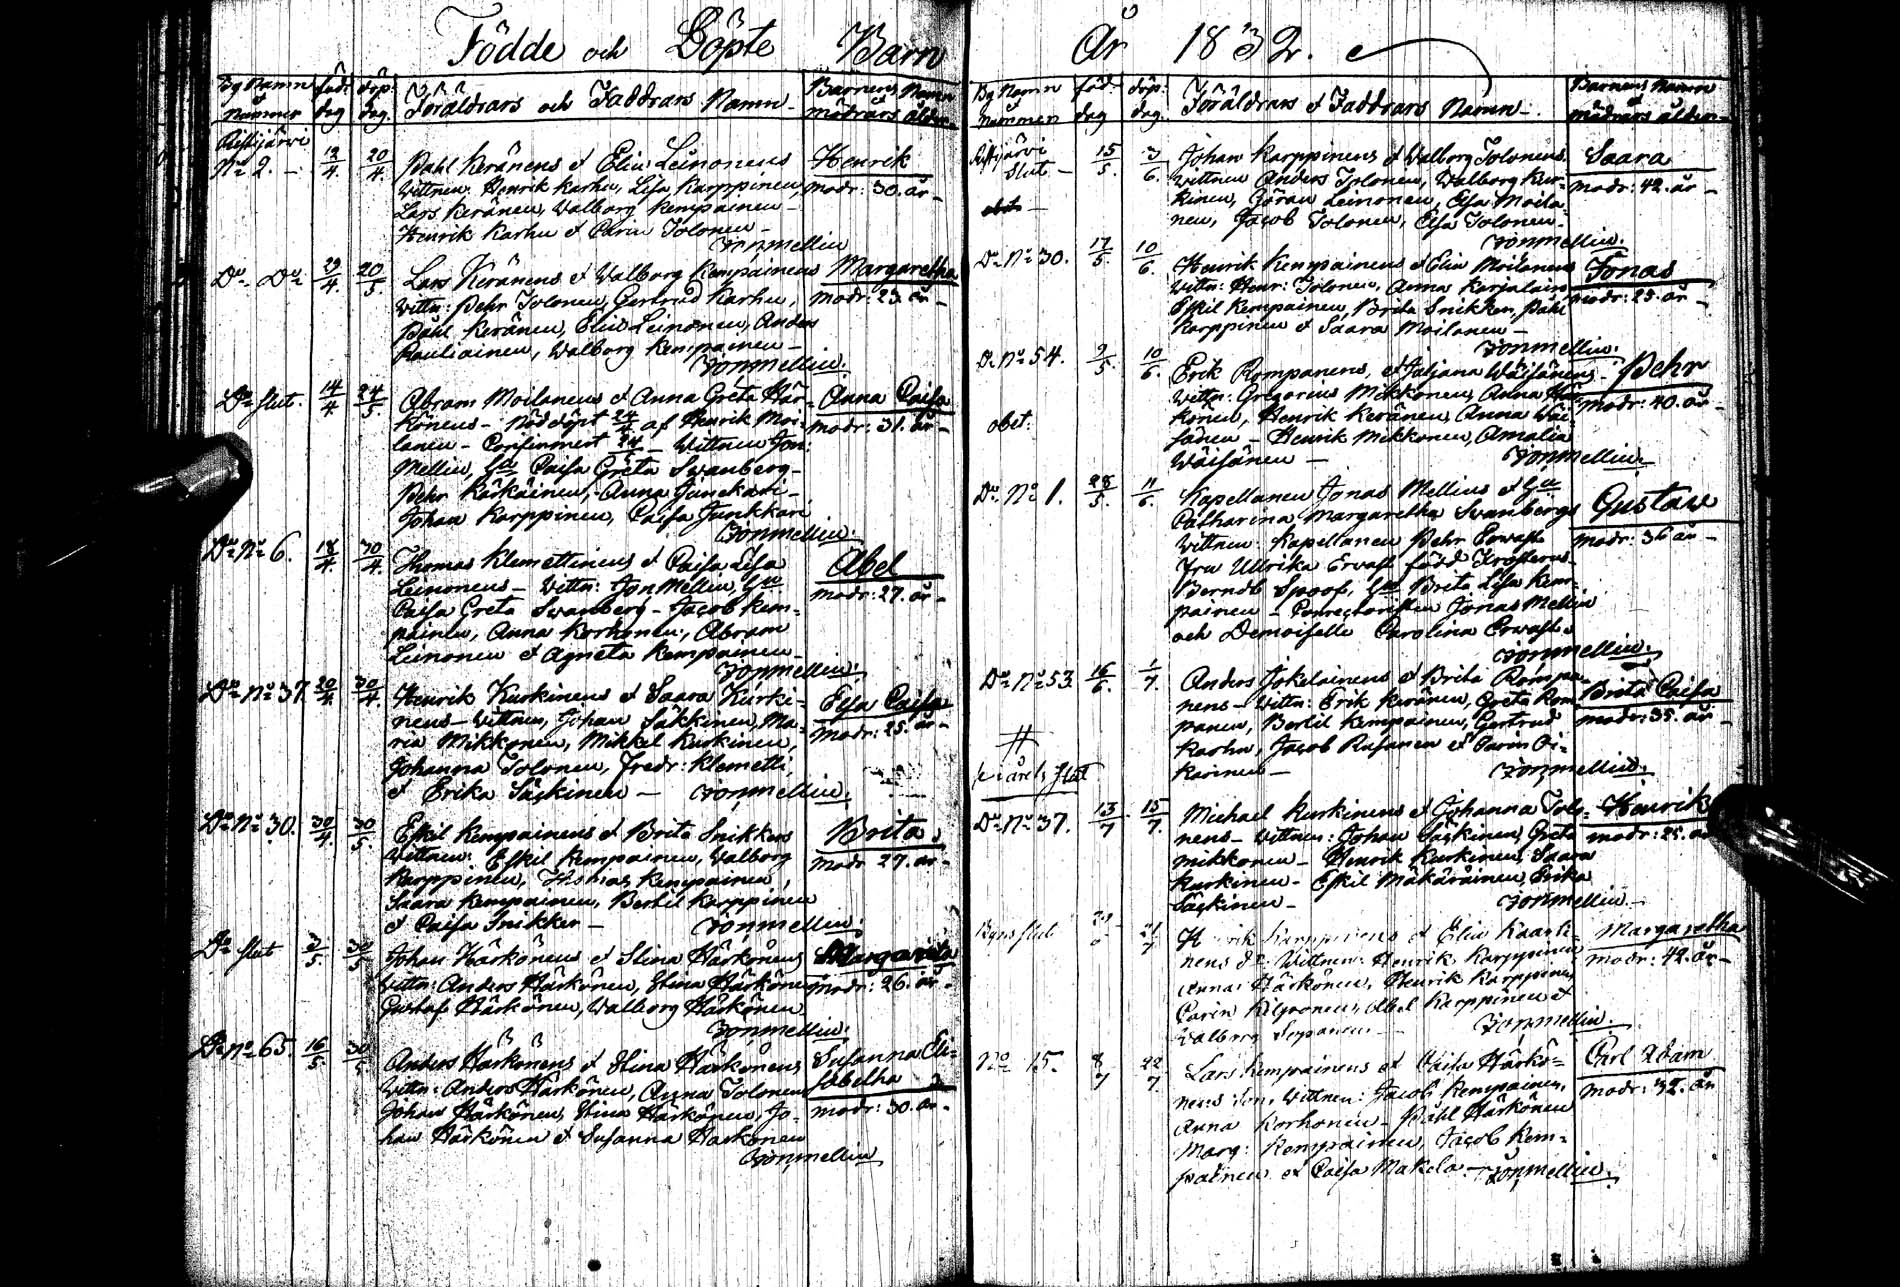 Födde och Döpte Barn
By Namn och Nummer
föd: dag
döp: dag.
Föräldrars och Faddrars Namn
Barnens Namn
mödrars ålder
Ristijärvi
No 2.
12/4.
20/4.
Påhl Keränens & Elin Leinonens
Wittnen: Henrik Karhu, Lisa Karppinen,
Lars Keränen, Walborg Kempainen
Henrik Karhu & Carin Tolonen
JonMellin
Henrik
modr: 30. år
Do Do
29/4.
20/5.
Lars Keränens & Walborg Kempainens
Wittn: Pehr Tolonen, Gertrud Karhu,
Påhl Keränen, Elin Leinonen, Anders
Pauliainen, Walborg Kempainen
JonMellin.
Margaretha
modr: 23. år
Do slut.
14/4.
24/5.
Abram Moilanens & Anna Greta Här-
könens - Nöddöpt 24/4 af Henrik Moi-
lanen - Confirmert 24/5 - Wittnen Jon:
Mellin, Caisa Greta Swanberg -
Pehr Kärkäinen, Anna Junckari -
Johan Karppinen, Caisa Junkkari
JonMellin.
Anna Caisa
modr: 31. år
Do No 6.
18/4.
30/4.
Thomas Klemettinens & Caisa Lisa
Leinonens - Wittn: JonMellin,
Caisa Greta Swanberg - Jacob Kem-
painen, Anna Korhonen, Abram
Leinonen & Agneta Kempainen
JonMellin.
Abel
modr: 27. år
Do No 37.
20/4.
30/4.
Henrik Kurkinens & Saara Kurki-
nens - Wittnen, Johan Säkkinen, Ma-
ria Mikkonen, Mikkel Kurkinen,
Johanna Tolonen, Fredr: Klemetti,
& Erika Säskinen - JonMellin.
Elsa Caisa
modr: 25. år
Do No 30.
30/4.
30/5.
Eskil Kempainens & Brita Snikkers
Wittnen: Eskil Kempainen, Walborg
Karppinen, Thomas Kempainen,
Saara Kempainen, Bertil Karppinen
& Caisa Snikker - JonMellin.
Brita
modr 27. år
Do slut
2/5.
30/5
Johan Härkönens & Stina Härkönens
Wittn: Anders Härkönen, Stina Härkönen
Gustaf Härkönen, Walborg Härkönen
JonMellin.
Margareta
modr: 26. år
Do No 65.
16/5.
30/5
Anders Härkönens & Stina Härkönens
Wittn: Anders Härkönen, Anna Tolonen
Johan Härkönen, Stina Härkönen, Jo-
han Härkönen & Susanna Härkönen
JonMellin
Susanna Eli-
sabetha
modr: 30. år
År 1832.
By Namn och Nummer
föd: dag
döp: dag.
Föräldrars & Faddrars Namn
Barnens Namn
& mödrars ålder
Ristijärvi
Slut
15/5.
3/6.
Johan Karppinens & Walborg Tolonens
Wittnen Anders Tolonen, Walborg Kur-
kinen, Göran Leinonen, Elsa Moila-
nen, Jacob Tolonen, Elsa Tolonen
JonMellin.
Saara
modr: 42. år
Do No 30.
17/5.
10/6.
Henrik Kempainens & Elin Moilanens
Wittn: Henr: Tolonen, Anna Karjalain
Eskil Kempainen, Brita Snikken, Påhl
Karppinen & Saara Moilanen
JonMellin.
Jonas
modr: 25. år
Do No 54.
9/5.
10/6.
obet.
Erik Rompanens, & Juljana Wäisänens
Wittn: Gregorius Mikkonen, Anna Här-
könen, Henrik Keränen, Anna Wäi-
sänen - Henrik Mikkonen, Amalia
Wäisänen - JonMellin.
Pehr
modr: 40. år
Do No 1.
28/5.
11/6.
Kapellanen Jonas Mellins &
Catharina Margaretha Swanbergs
Wittnen: Kapellanen Pehr Erwast
Fru Ullrika Erwast född
Berndt Spoof, Brita Lisa Kem-
painen - Jonas Mellin
och Demoiselle Carolina Erwast.
JonMellin.
Gustaw
modr: 36 år
Do No 53
16/6.
1/7.
Anders Jokelainens & Brita Rompa-
nens - Wittn: Erik Keränen, Greta Rom
panen, Bertil Kempainen, Gertrud
Karhu, Jacob Rusanen & Carin Oi-
karinen - JonMellin.
Brita Caisa
modr: 35. år
Do No 37.
13/7
15/7.
Michael Kurkinens & Johanna Tolo-
nens - Wittnen: Johan Säskinen, Greta
Mikkonen - Henrik Kurkinen, Saara
Kurkinen - Eskil Mäkäräinen, Erika
Säskinen - JonMellin
Henrik
modr: 25. år
Byns slut
21/7
Henrik Karppinens & Elin Kaarti-
nens Wittnen: Henrik Karppinen
Anna Härkönen, Henrik Karppinen
Carin Kilponen, Abel Karppinen &
Walborg JonMellin.
Margaretha
modr: 42. år
No 15.
8/7
22/7.
Lars Kempainens & Caisa Härkö-
nens Son, Wittnen: Jacob Kempainen,
Anna Korhonen - Påhl Härkönen
Marg: Kempainen, Jacob Kem-
painen & Caisa Makela - JonMellin.
Carl Adam
modr: 32. år